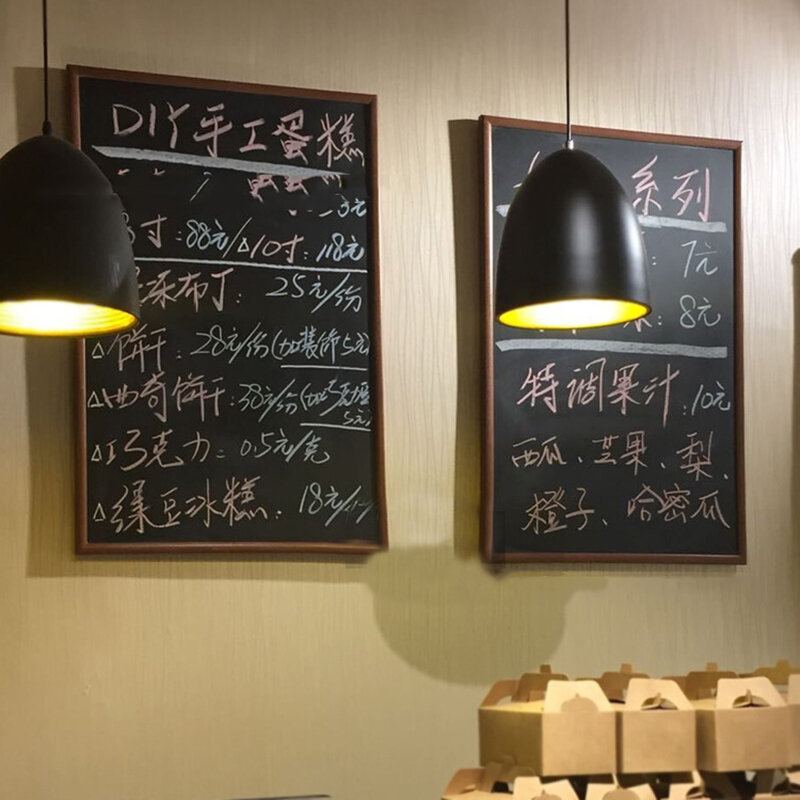 DIY手工蛋糕
3元
寸:88元/△10寸:118元
布丁: 25元/份
△饼干:28元/份(加装饰5元)
△曲奇饼干:38元/份(加
5元)
△巧克力:0.5元/克
△绿豆冰糕: 18元/
系列
: 7元
: 8元
特调果汁:10元
西瓜、芒果、梨、
橙子、哈密瓜